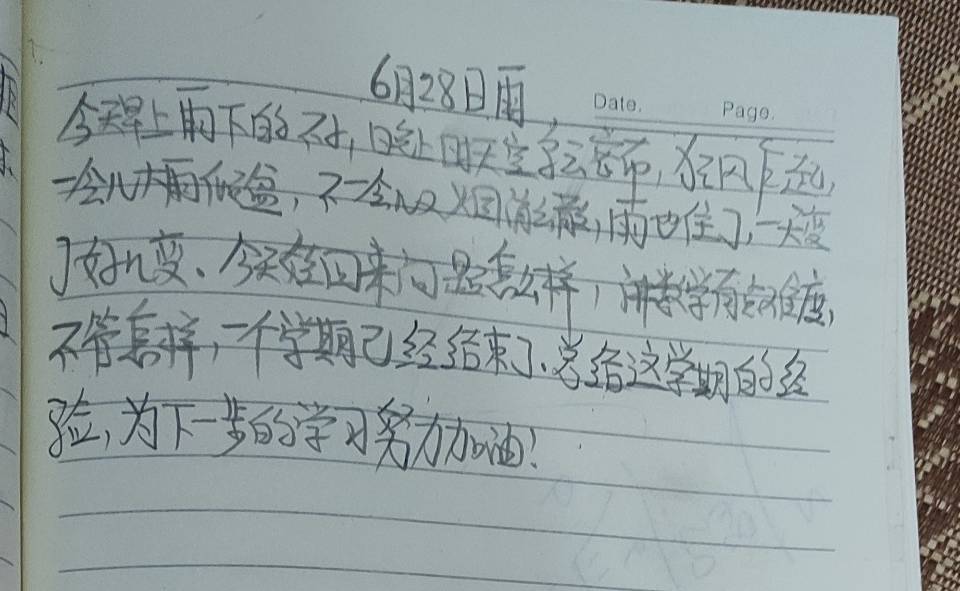 6月28日雨
Date. Page.
今天早上雨下的不大,晚上时天空乌云密布,狂风乍起,
一会儿大雨倾盆,不一会儿又烟消云散,雨也住了,一天变
了好几变、今天娃回来问是怎么样,讲数学有点难度,
不管怎样,一个学期已经结束了、总结这学期的经
验,为下一步的学习努力加油!